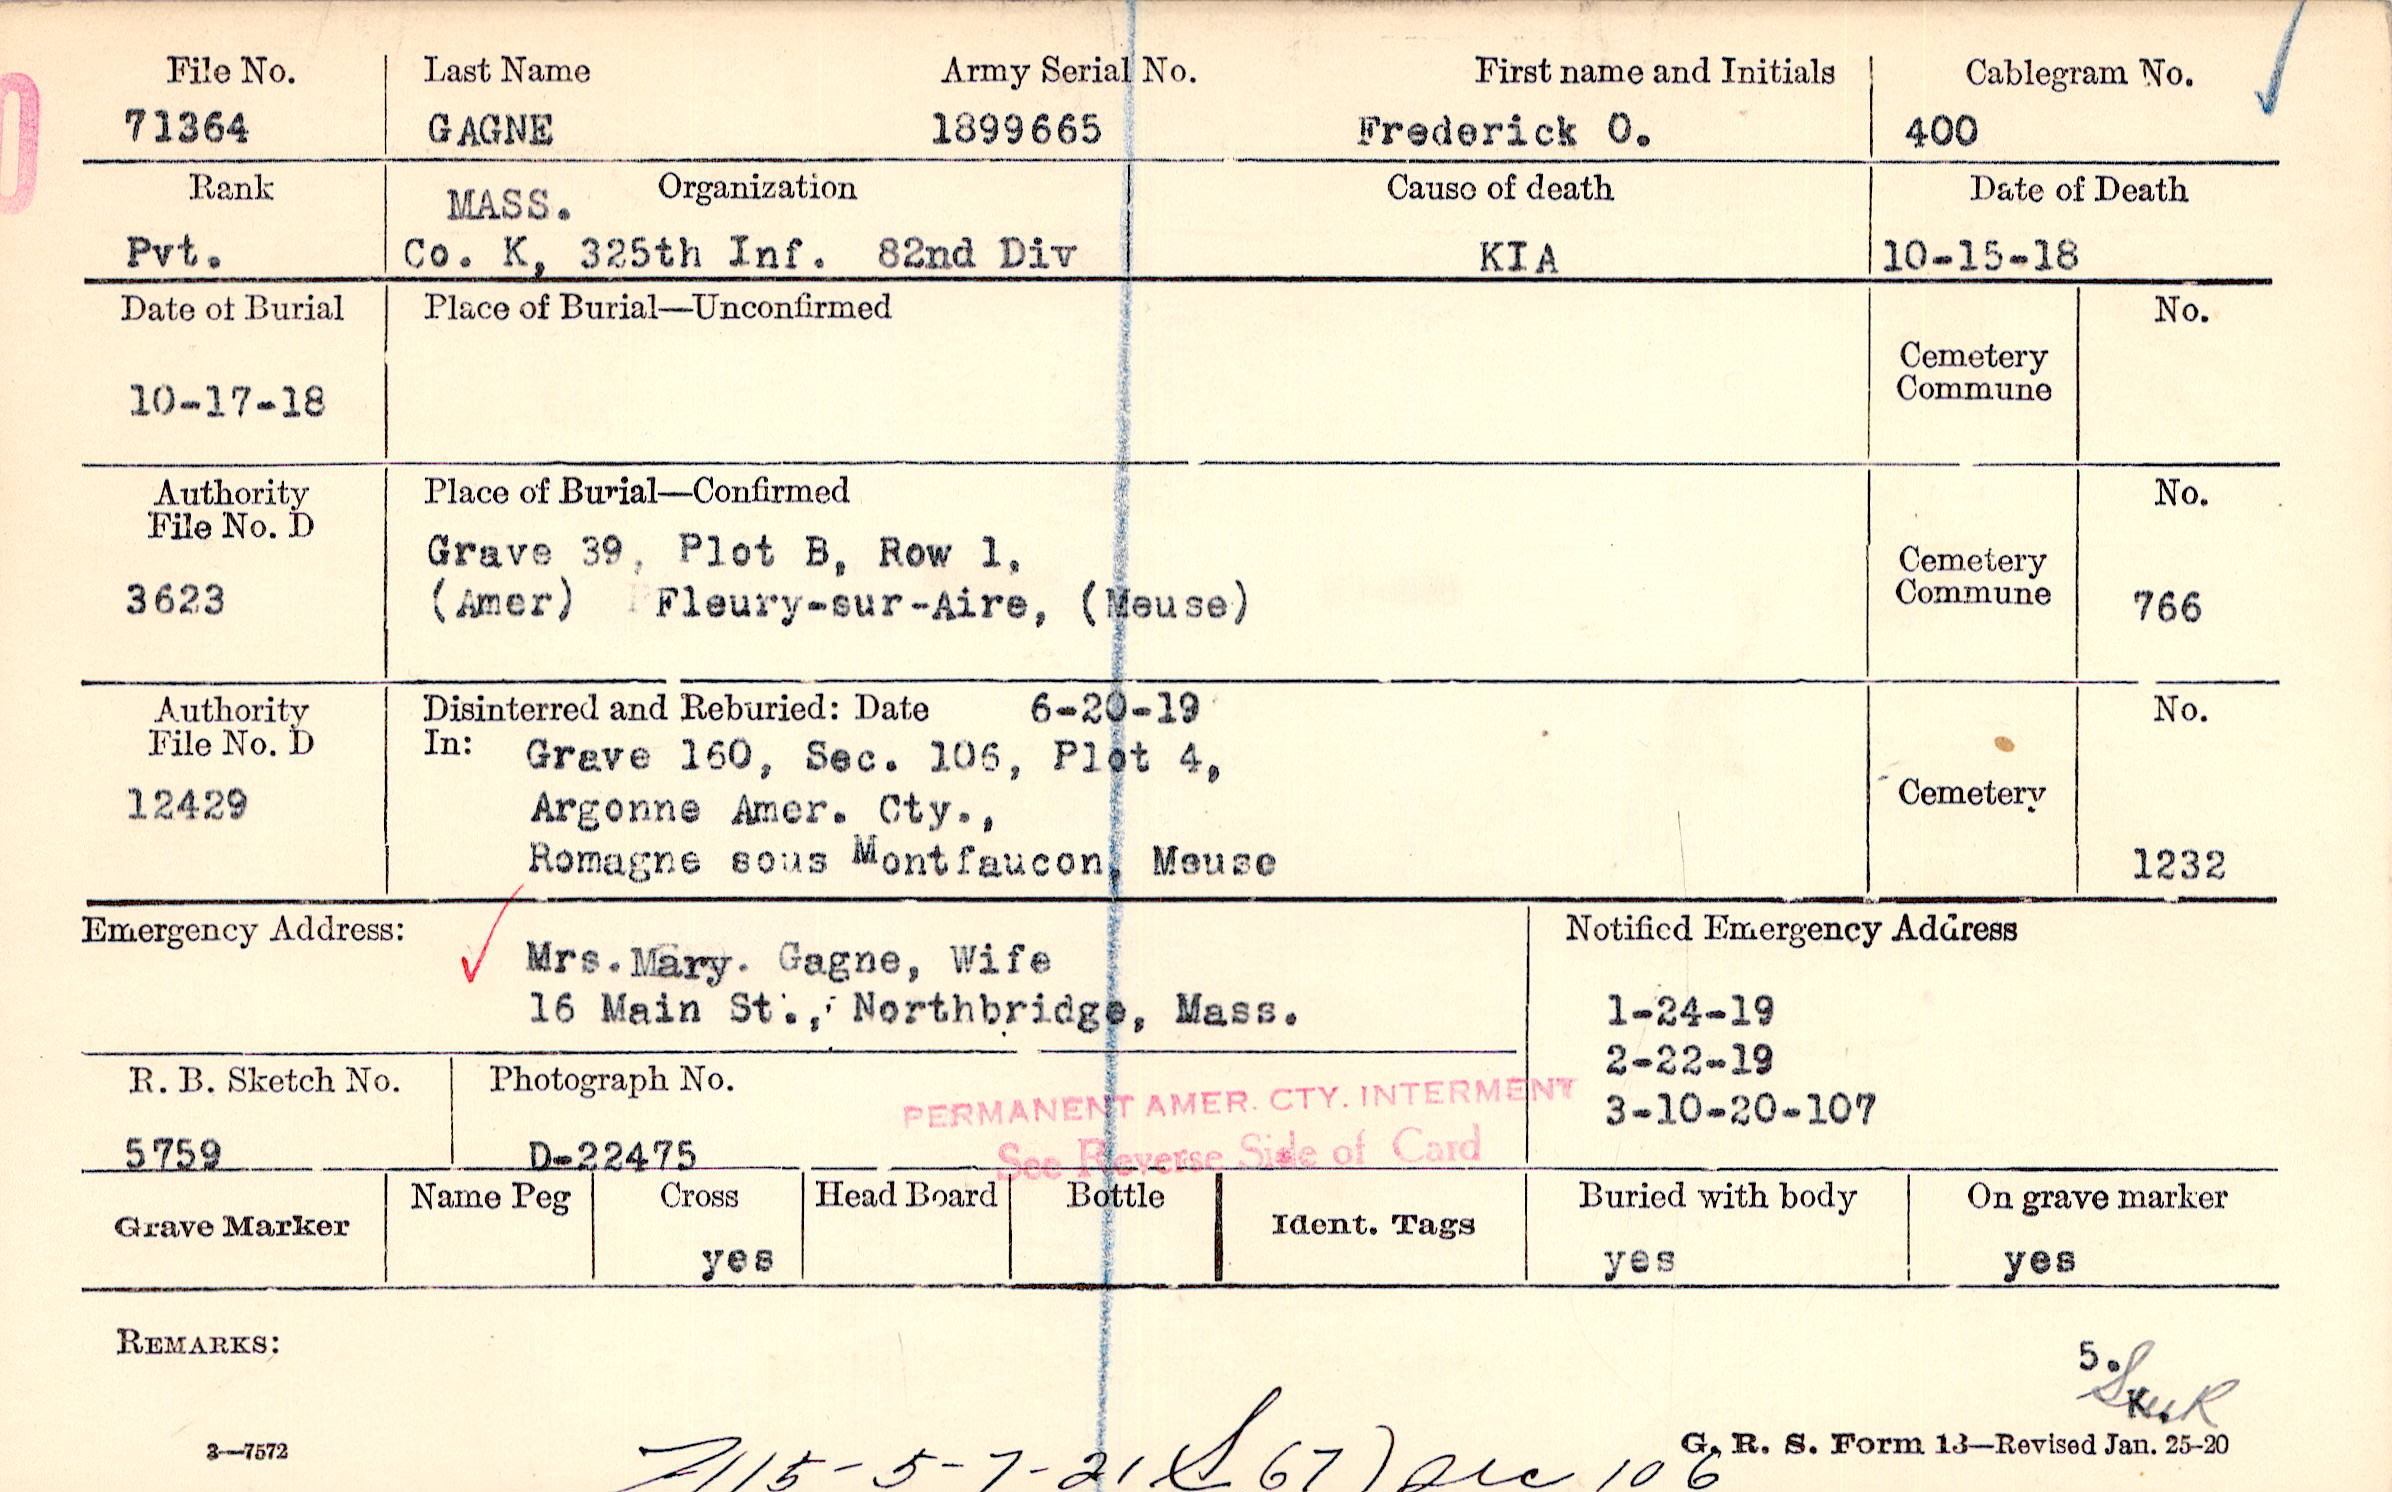 File No. Last Name Army Serial No. First name and Initials Cablegram No.
71364 GAGNE 1899665 Frederick O. 400
Rank MASS. Organization Cause of death Date of Death
Pvt. Co. K, 325th Inf. 82nd Div KIA 10-15-18
Date of Burial Place of Burial—Unconfirmed No.
Cemetery
Commune
10-17-18
Authority Place of Burial—Confirmed No.
File No. D
Grave 39, Plot B, Row 1,
Cemetery
3623 (Amer) Fleury-sur-Aire, (Meuse) Commune 766
Authority Disinterred and Reburied: Date 6-20-19 No.
File No. D In: Grave 160, Sec. 106, Plot 4,
12429 Argonne Amer. Cty., Cemetery
Romagne sous Montfaucon, Meuse 1232
Emergency Address: Notified Emergency Address
Mrs. Mary. Gagne, Wife
16 Main St., Northbridge, Mass. 1-24-19
2-22-19
R. B. Sketch No. Photograph No.
PERMANENT AMER. CTY. INTERMENT 3-10-20-107
See Reverse Side of Card
5759 D-22475
Grave Marker Name Peg Cross Head Board Bottle Ident. Tags Buried with body On grave marker
yes yes yes
REMARKS:
5.
K.
3—7572 G. R. S. Form 13—Revised Jan. 25-20
115-5-7-21 67) 106